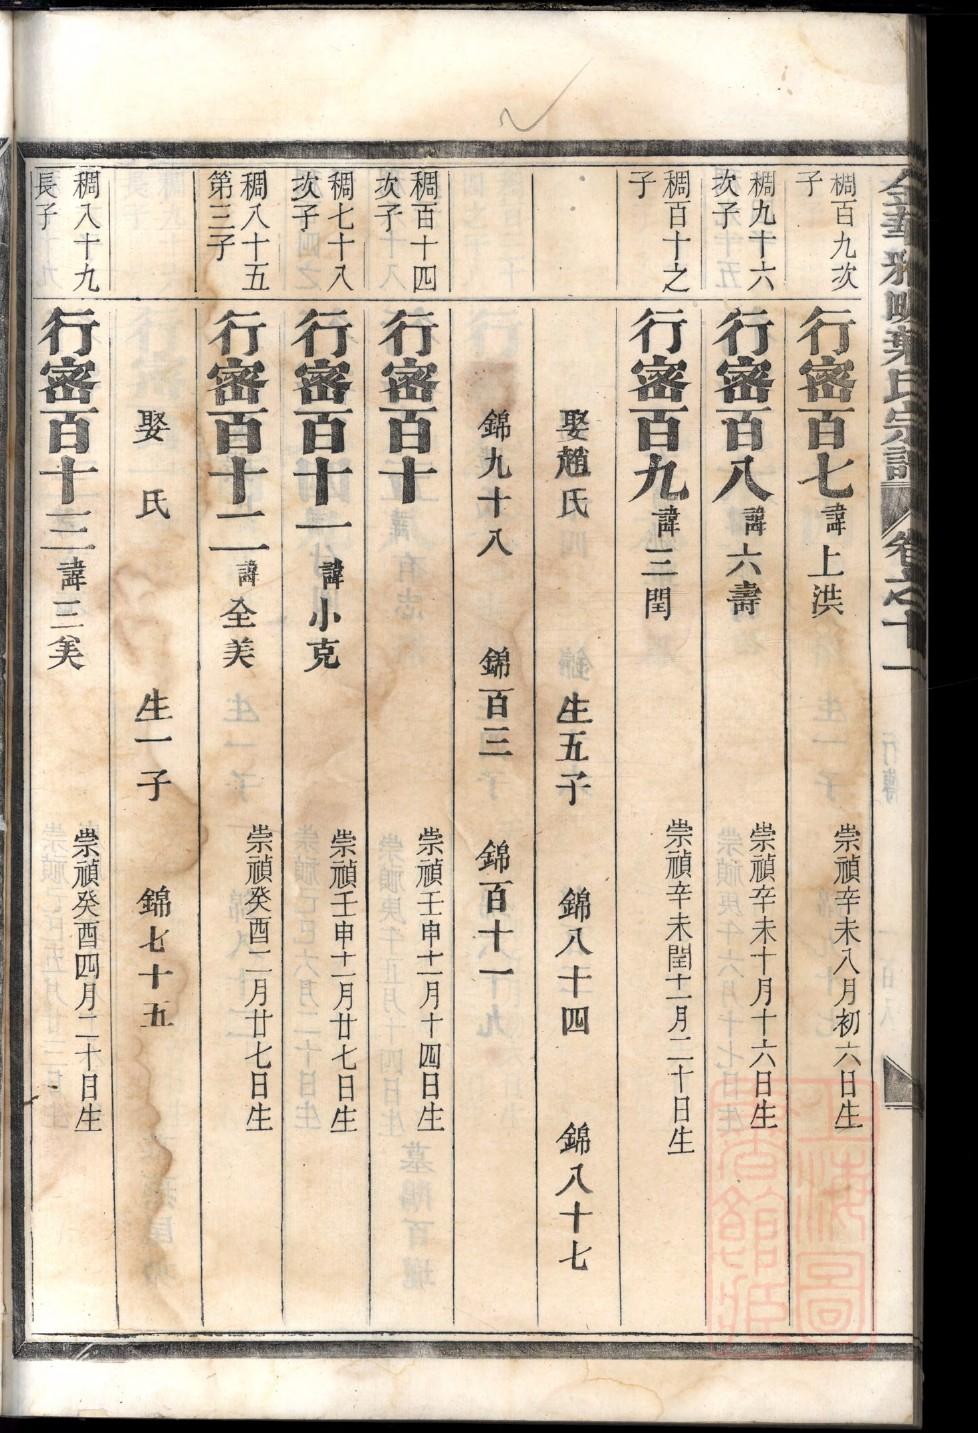 金華雅畈葉氏宗譜 卷之十一
稠百九次子 行密百七 諱上洪 崇禎辛未八月初六日生
稠九十六次子 行密百八 諱六壽 崇禎辛未十月十六日生
稠百十之子 行密百九 諱三閏 崇禎辛未閏十一月二十日生
娶趙氏 生五子 錦八十四 錦八十七
錦九十八 錦百三 錦百十一
稠百十四次子 行密百十 崇禎壬申十一月十四日生
稠七十八次子 行密百十一 諱小克 崇禎壬申十一月廿七日生
稠八十五第三子 行密百十二 諱全美 崇禎癸酉二月廿七日生
娶 氏 生一子 錦七十五
稠八十九長子 行密百十三 諱三美 崇禎癸酉四月二十日生